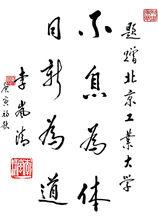 题赠北京工业大学
不息为体
日新为道
李岚清